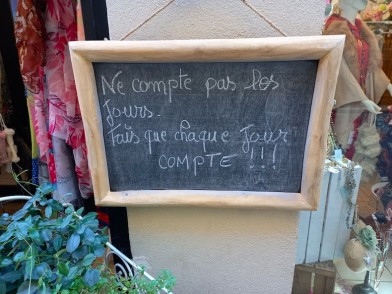 Ne compte pas les
Jours.
Fais que chaque Jour
COMPTE !!!